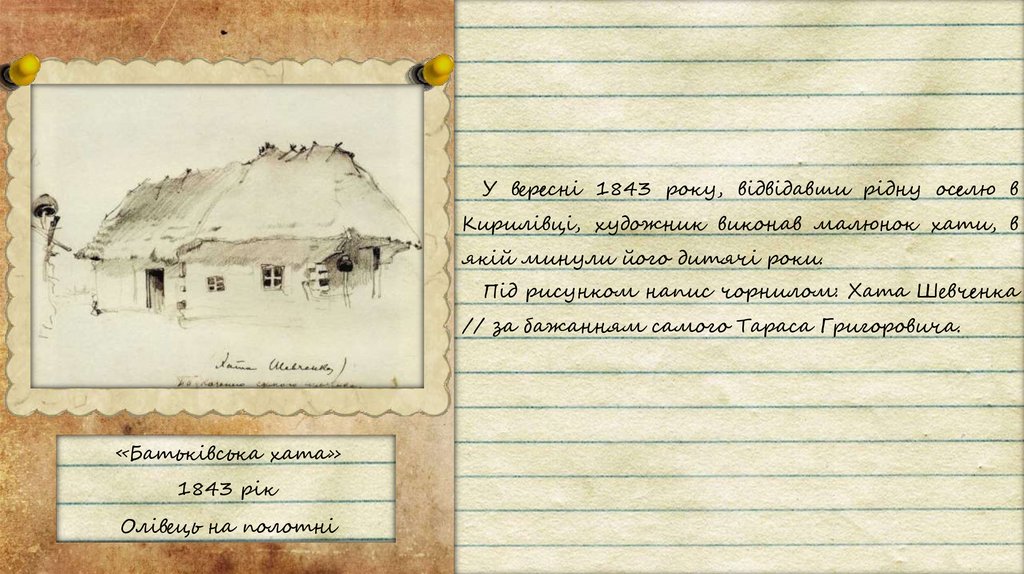 Хата Шевченка)
«Батьківська хата»
1843 рік
Олівець на полотні
У вересні 1843 року, відвідавши рідну оселю в
Кирилівці, художник виконав малюнок хати, в
якій минули його дитячі роки.
Під рисунком напис чорнилом: Хата Шевченка
// за бажанням самого Тараса Григоровича.